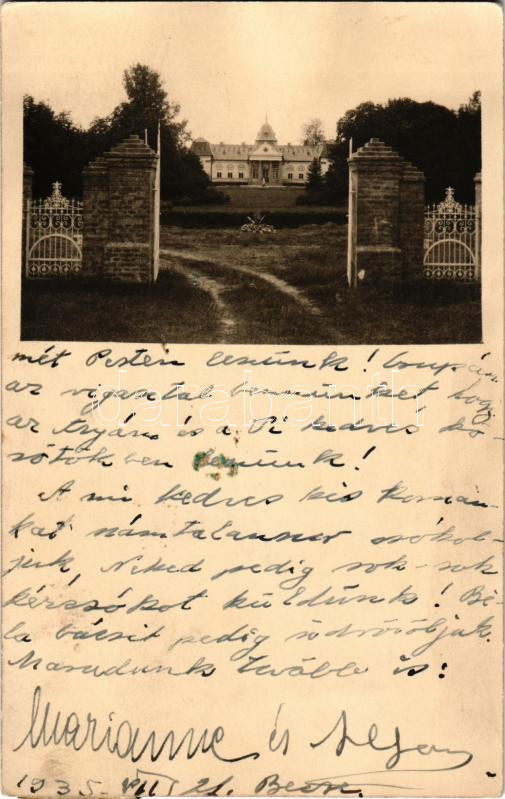 mét Pesten leszünk! Csupán
az vigasztal bennünket hogy
az Anyám és a Ti kedves kö-
rötökben leszünk!
A mi kedves kis
kat számtalanszor csókol-
juk, Neked pedig sok-sok
kézcsókot küldünk! Bé-
la bácsit pedig üdvözöljük.
Maradunk továbbra is:
Marianne és
1935. VII 21.
darabanth